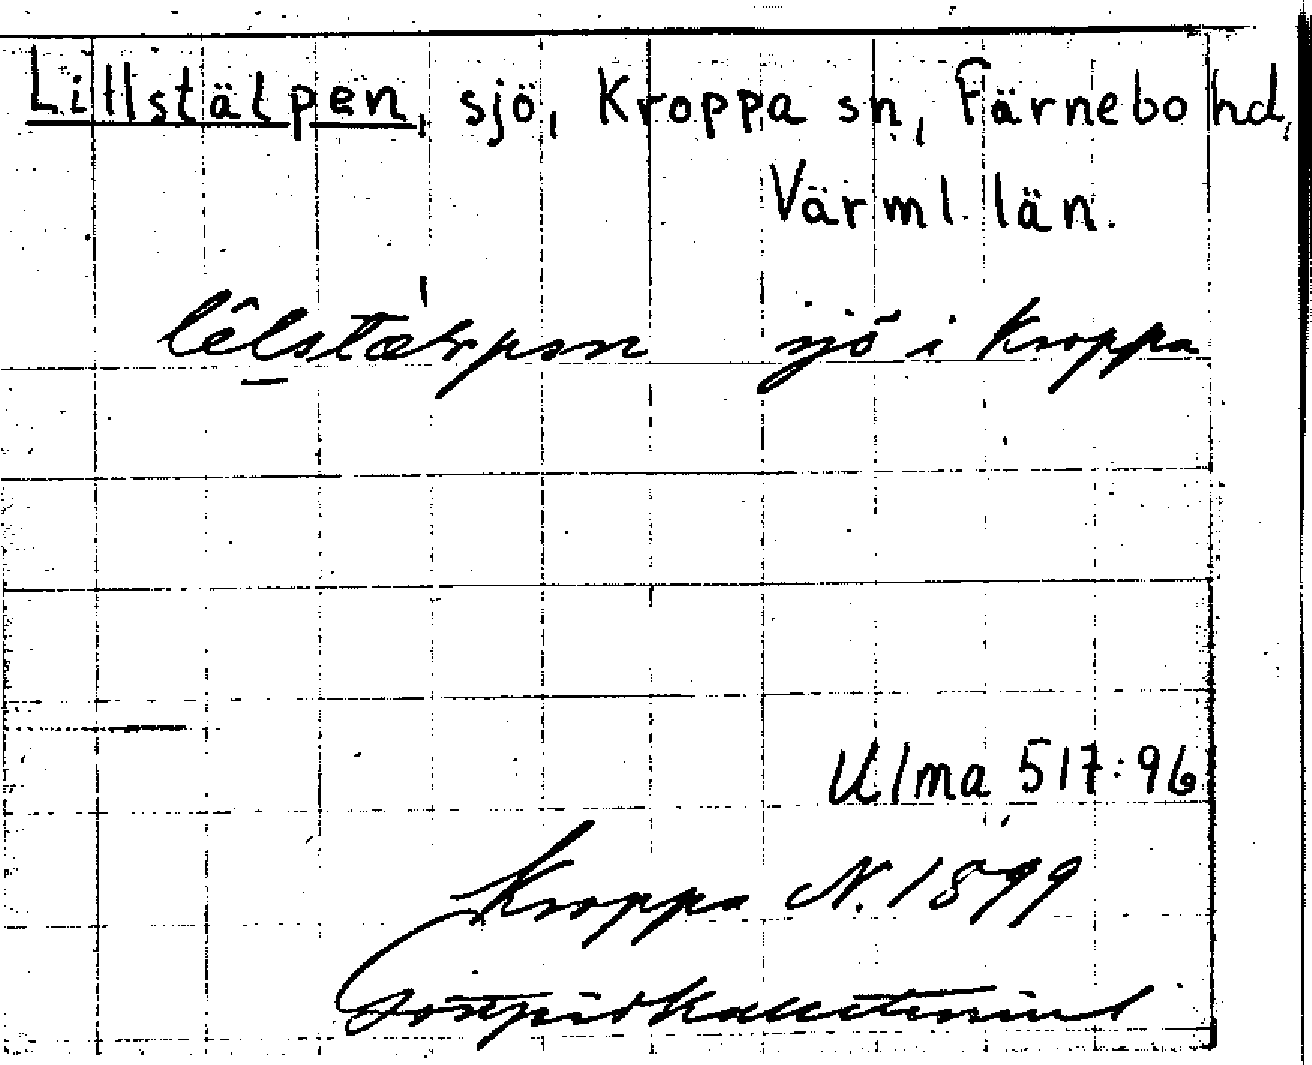 Lillstälpen, sjö, Kroppa sn, Färnebo hd,
Värml. län.
sjö i Kroppa
Ulma 517:96
Kroppa N. 1899